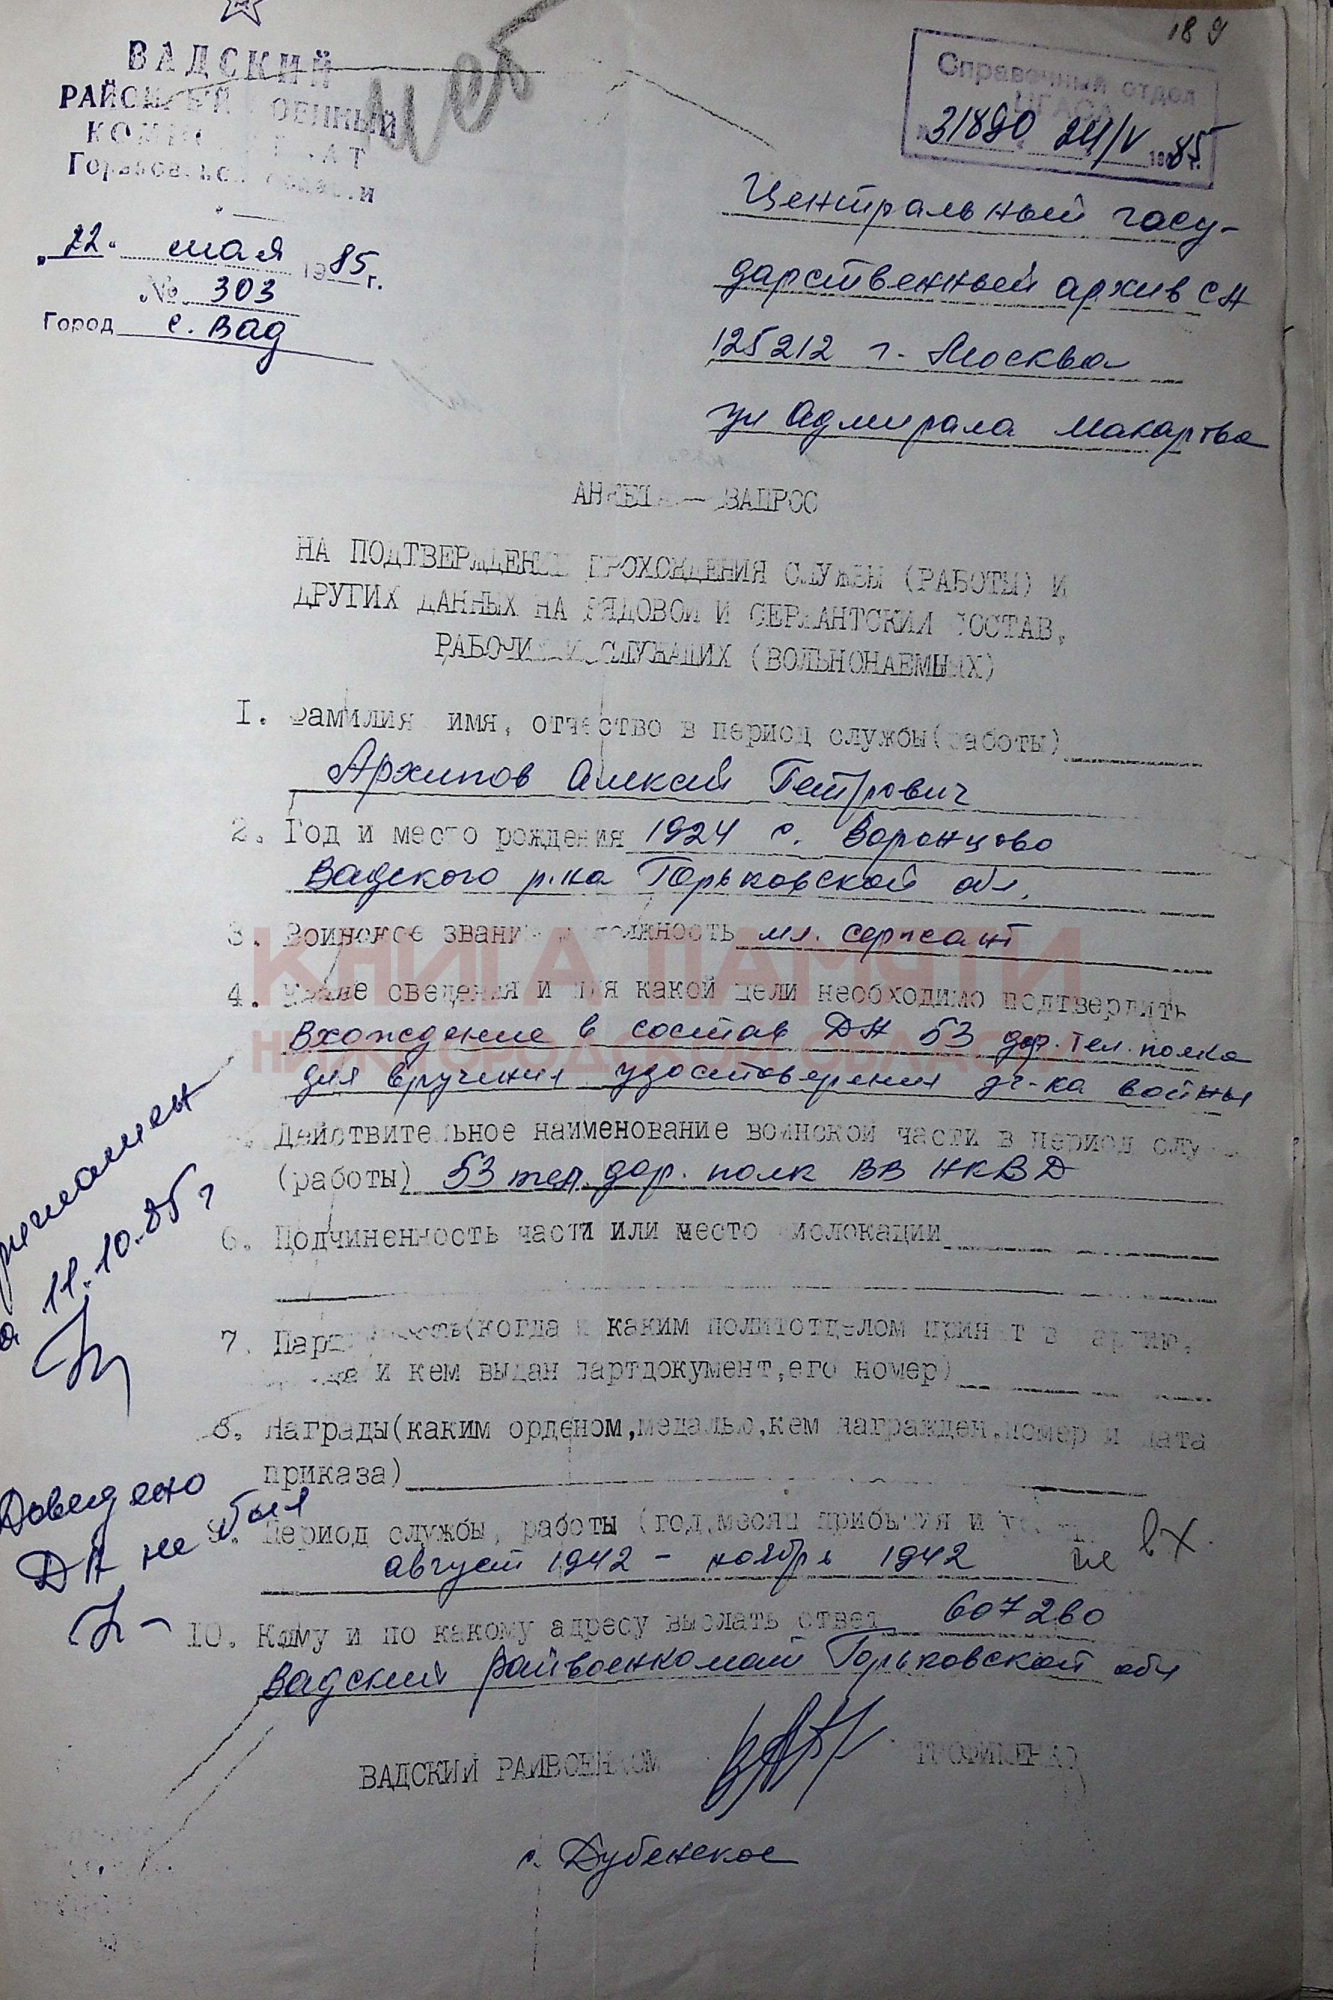 189
ВАДСКИЙ
РАЙОННЫЙ ВОЕННЫЙ
КОМИССАРИАТ
Горьковской области
"22" мая 1985 г.
№ 303
Город с. Вад
Справочный отдел
ЦГАСА
31890 24/V 1985 г.
Центральный госу-
дарственный архив СА
125212 г. Москва
ул Адмирала Макарова
АНКЕТА — ЗАПРОС
НА ПОДТВЕРЖДЕНИЕ ПРОХОЖДЕНИЯ СЛУЖБЫ (РАБОТЫ) И
ДРУГИХ ДАННЫХ НА РЯДОВОЙ И СЕРЖАНТСКИЙ СОСТАВ,
РАБОЧИХ И СЛУЖАЩИХ (ВОЛЬНОНАЕМНЫХ)
I. Фамилия имя, отчество в период службы(работы)
Архипов Алексей Петрович
2. Год и место рождения 1924 с. Воронцово
Вадского р-на Горьковской обл.
3. Воинское звание и должность мл. сержант
КНИГА ПАМЯТИ
4. Какие сведения и для какой цели необходимо подтвердить
Вхождение в состав ДА 53 дор. тел. полка
НИЖЕГОРОДСКОЙ ОБЛАСТИ
для вручения удостоверения уч-ка войны
Действительное наименование воинской части в период служ
(работы) 53 тел. дор. полк ВВ НКВД
6. Подчиненность части или место дислокации
7. Партийность(когда и каким политотделом принят в партию,
когда и кем выдан партдокумент,его номер)
8. Награды(каким орденом,медалью,кем награжден,номер и дата
приказа)
9. Период службы, работы (год,месяц прибытия и
август 1942 - ноябрь 1942
не вх.
10. Кому и по какому адресу выслать ответ 607260
Вадский райвоенкомат Горьковской обл
ВАДСКИЙ РАЙВОЕНКОМ
с. Дубенское
11.10.85 г
Доведено
ДА не был